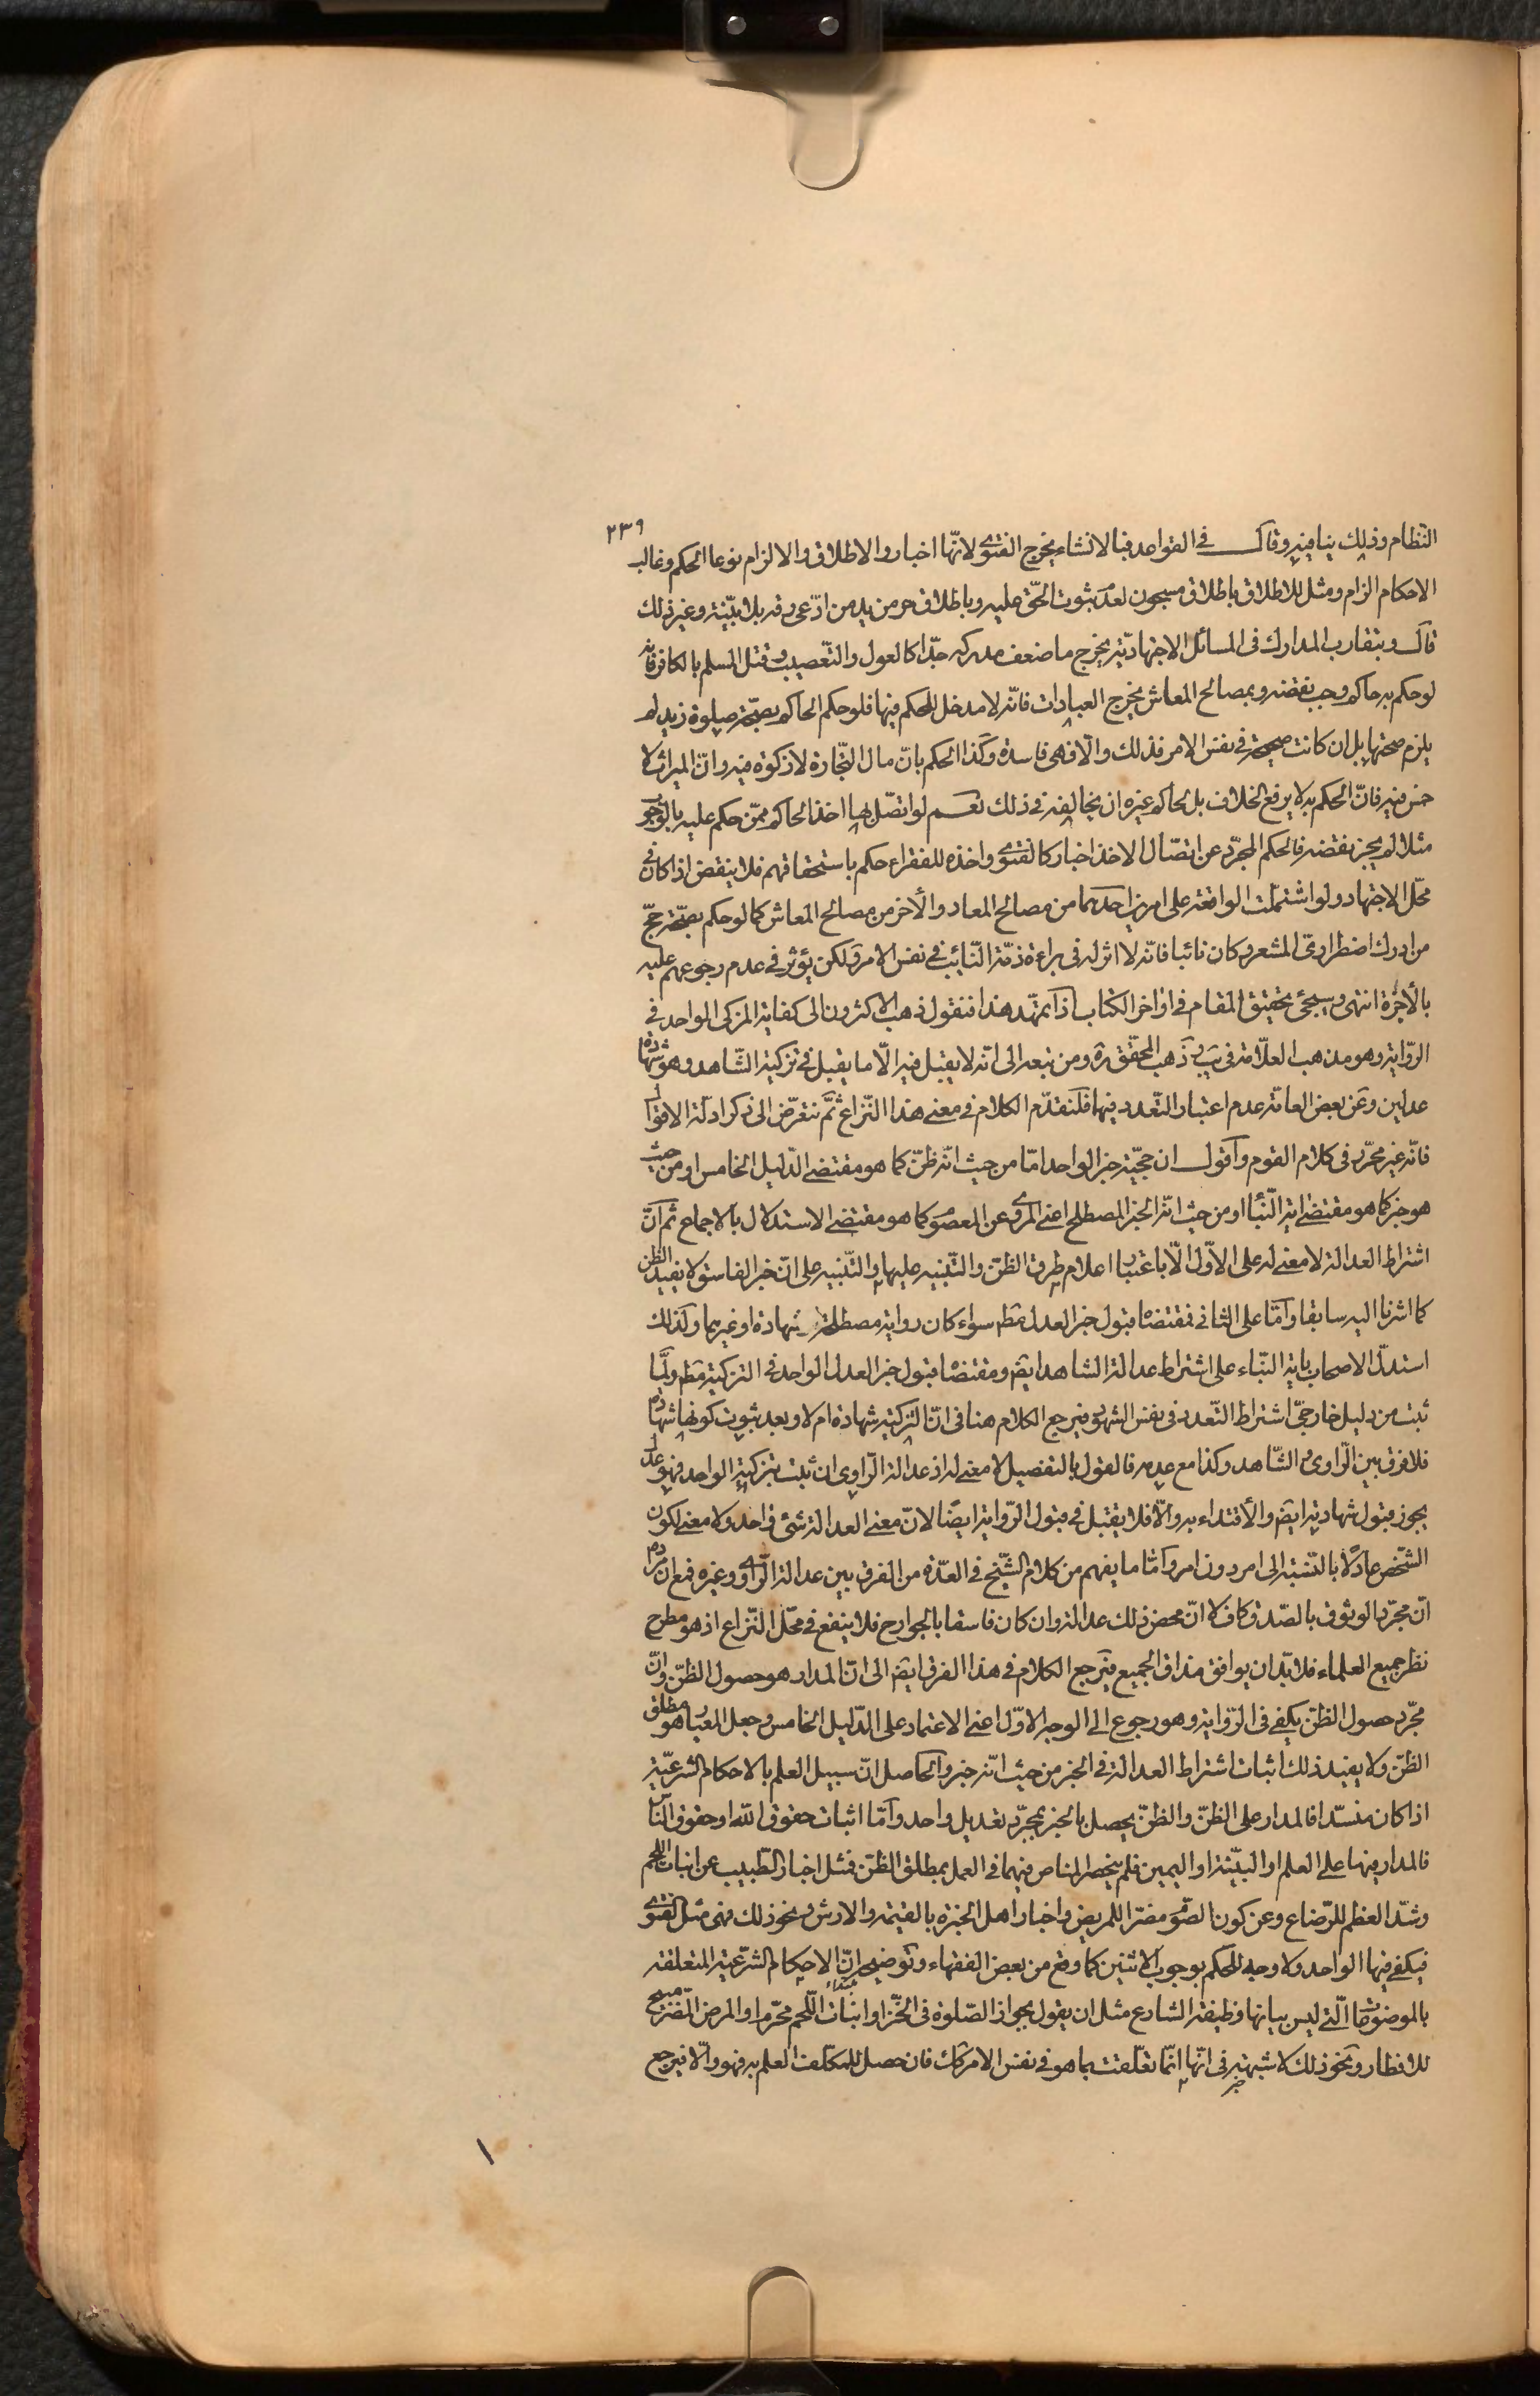 ٢٣٩
النظام وذلك ينافيه وقال في القواعد فبالانشاء يخرج الفتوى لانّها اخبار والاطلاق والالزام نوعا الحكم وغالب
الاحكام الزام ومثل للاطلاق باطلاق مسجون لعدم ثبوت الحقّ عليه وباطلاق حر من يد من ادّعى رقه بلا بيّنة وغير ذلك
قال وبتقارب المدارك فى المسائل الاجتهاديّة يخرج ما ضعف مدركه جدّا كالعول والتّعصيب وقتل المسلم بالكافر فانه
لو حكم به حاكم وجب نقضه وبمصالح المعاش يخرج العبادات فانّه لا مدخل للحكم فيها فلو حكم الحاكم بصحّة صلوة زيد لم
يلزم صحتها بل ان كانت صحيحة في نفس الامر فذلك والّا فهى فاسدة وكذا الحكم بانّ مال التجّارة لا زكوة فيه وانّ الميراث لا
خمس فيه فانّ الحكم به لا يرفع الخلاف بل لحاكم غيره ان يخالفه في ذلك نعم لو اتصّل بها اخذ الحاكم ممّن حكم عليه بالوجوب
مثلا لم يجز نقضه فالحكم المجرّد عن اتصّال الاخذ اخبار كالفتوى واخذه للفقراء حكم باستحقاقهم فلا ينقض اذا كان في
محّل الاجتهاد ولو اشتملت الواقعة على امرين احدهما من مصالح المعاد والأخر من مصالح المعاش كما لو حكم بصحّة حجّ
من ادرك اضطرارىّ المشعر وكان نائبا فانّه لا اثر له فى براءة ذمّة النّائب في نفس الامر ولكن يؤثر في عدم رجوعهم عليه
بالأجرة انتهى وسيجئ تحقيق المقام في اواخر الكتاب اذا تمهّد هذا فنقول ذهب الاكثرون الى كفاية المزكى الواحد في
الرّواية وهو مذهب العلّامة فى يب وذهب المحقّق ره ومن تبعه الى انّه لا يقبل فيه الّا ما يقبل في تزكية الشّاهد وهو شهادة
عدلين وعن بعض العامّة عدم اعتبار التّعدد فيها فلنقدّم الكلام في معنى هذا النّزاع ثمّ نتعرّض الى ذكر ادلّة الاقوال
فانّه غير محرّر فى كلام القوم واقول ان حجيّة خبر الواحد امّا من حيث انّه ظنّ كما هو مقتضى الدّليل الخامس او من حيث
هو خبر كما هو مقتضى اية النّبأ او من حيث انّه الخبر المصطلح اعنى المروى عن المعصوم كما هو مقتضى الاستدلال بالاجماع ثم انّ
اشتراط العدالة لا معنى له على الاوّل الّا باعتبار اعلام طرق الظنّ والتّنبيه عليها والتّنبيه على انّ خبر الفاسق لا يفيد الظن
كما اشرنا اليه سابقا وامّا على الثانى فمقتضاه قبول خبر العدل مط سواء كان رواية مصطلحة او شهادة او غيرهما وكذلك
استدلّ الاصحاب باية النّباء على اشتراط عدالة الشاهد ايضً ومقتضاه قبول خبر العدل الواحد في التزكية مط ولمّا
ثبت من دليل خارجىّ اشتراط التّعدد فى نفس الشهود فيرجع الكلام هنا فى انّ التزكية شهادة ام لا وبعد ثبوت كونها شهادة
فلا فرق بين الرّاوى والشّاهد وكذا مع عدمه فالقول بالتفصيل لا معنى له اذ عدالة الرّاوى ان ثبتت بتزكية الواحد فهو عدل
يجوز قبول شهادته ايضً والأقتداء به والّا فلا يقبل في قبول الرّواية ايضًا لانّ معنى العدالة شئ واحد ولا معنى لكون
الشّخص عادلًا بالنّسبة الى امر دون امر وامّا ما يفهم من كلام الشّيخ في العدّة من الفرق بين عدالة الرّاوى وغيره فمع ان مراده
انّ مجرّد الوثوق بالصّدق كاف لا انّ محض ذلك عدالة وان كان فاسقا بالجوارح فلا ينفع في محّل النّزاع اذ هو مطرح
نظر جميع العلماء فلا بّد ان يوافق مذاق الجميع فيرجع الكلام في هذا الفرق ايضً الى انّ المدار هو حصول الظنّ وانّ
مجّرد حصول الظنّ يكفى فى الرّواية وهو رجوع الى الوجه الاوّل اعنى الاعتماد على الدّليل الخامس وجعل المعيار هو مطلق
الظنّ ولا يفيد ذلك اثبات اشتراط العدالة في الخبر من حيث انّه خبر والحاصل انّ سبيل العلم بالاحكام الشرعيّة
اذا كان منسدّا فالمدار على الظنّ والظنّ يحصل بالخبر بمجرّد تعديل واحد وامّا اثبات حقوق الله او حقوق النّاس
فالمدار فيها على العلم او البيّنة او اليمين فلم ينحصر المناص فيهما في العمل بمطلق الظنّ فمثل اخبار الطّبيب عن انبات اللحم
وشدّ العظم للرّضاع وعن كون الصّوم مضرّا للمريض واخبار اهل الخبرة بالقيمة والارش ونحو ذلك فهى مثل الفتوى
فيكفى فيها الواحد ولا وجه للحكم بوجوب الاثنين كما وقع من بعض الفقهاء وتوضيحه انّ الاحكام الشرعيّة المتعلقة
بالموضوعات الّتى ليس بيانها وظيفة الشارع مثل ان يقول يجواز الصّلوة فى الخّز او انبات اللّحم محّرم او المرض المّضر مبيح
للافطار ونحو ذلك لا شبهة فى انّها انّما تعلّقت بما هو في نفس الامر كك فان حصل للمكّلف العلم به فهو والّا فيرجع